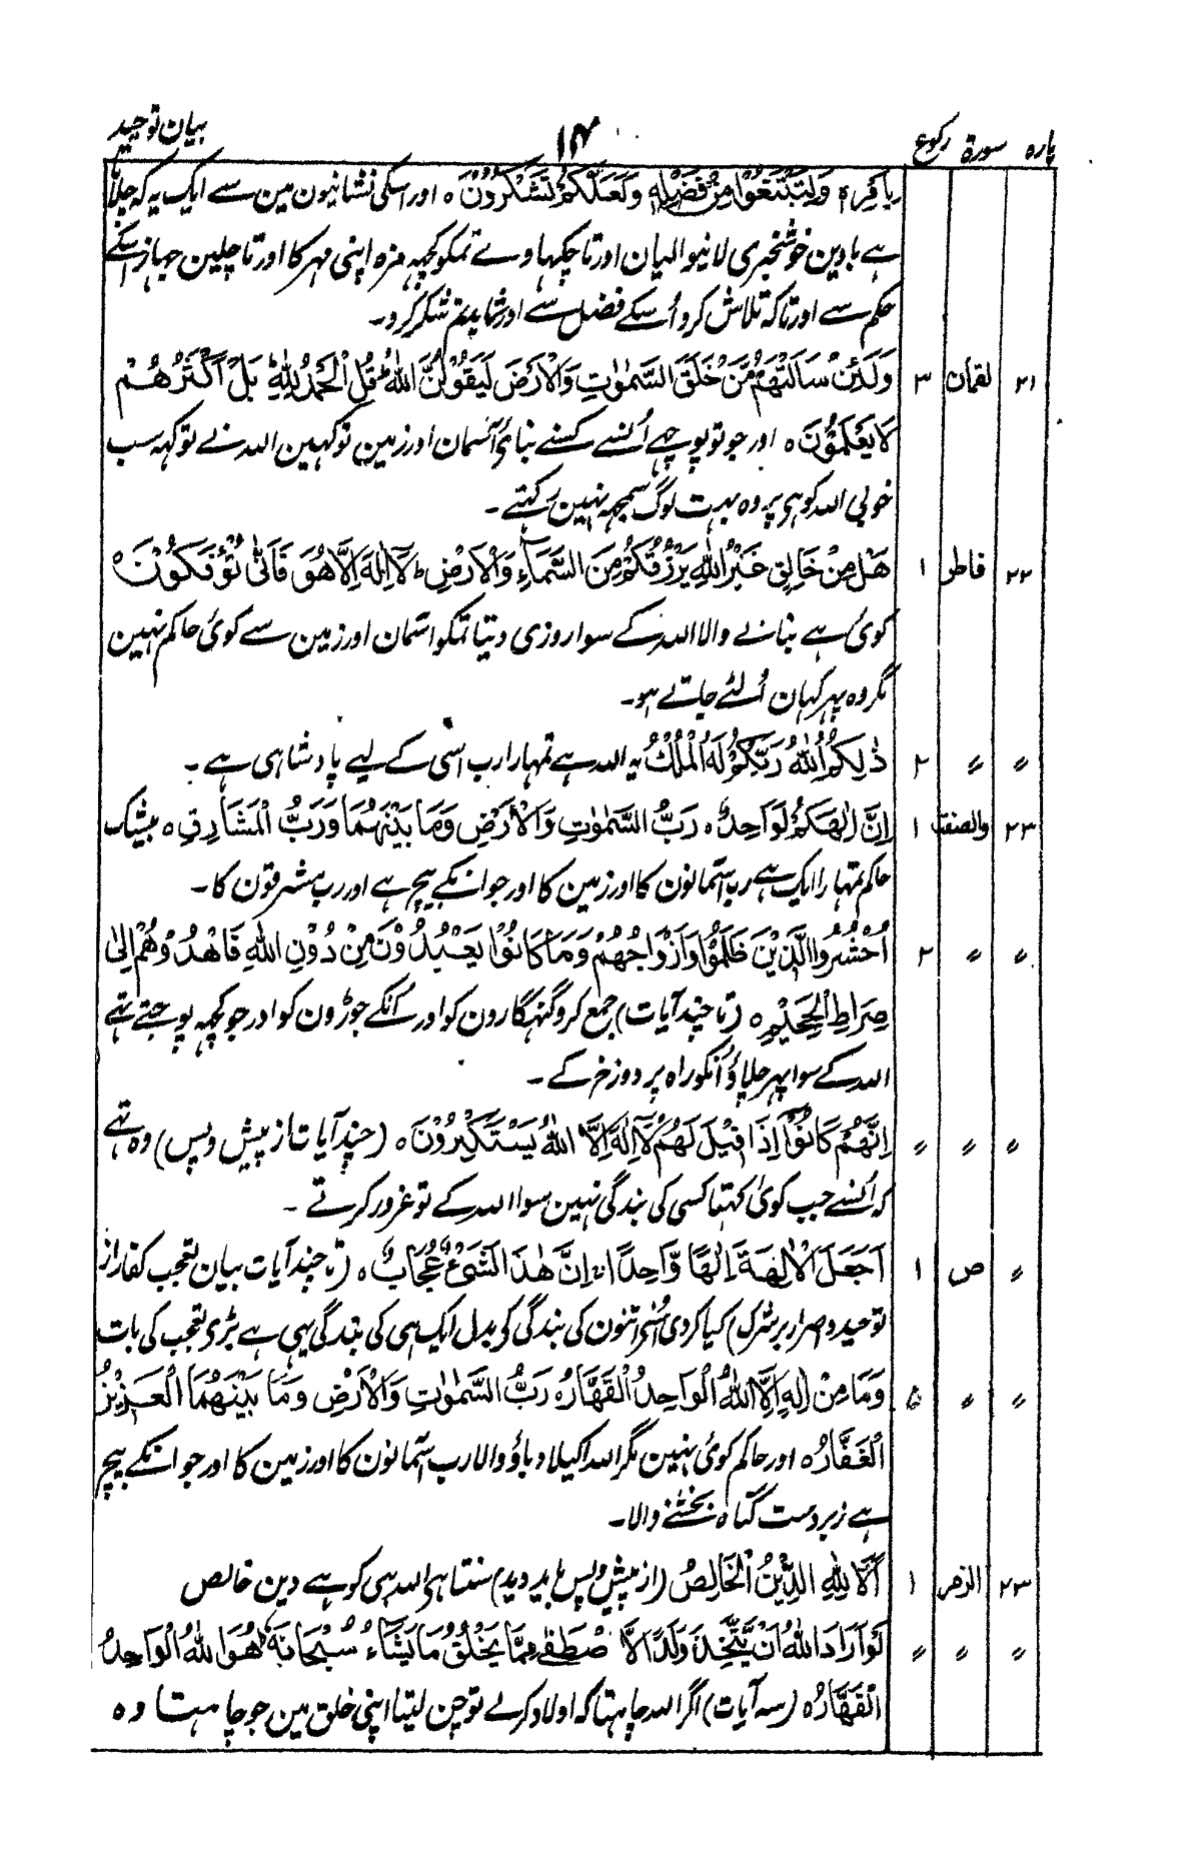 پارہ سورة رکوع ۱۴ بیان توحید
بِاَمْرِهٖ وَلِتَبْتَغُوْا مِنْ فَضْلِهٖ وَلَعَلَّكُمْ تَشْكُرُوْنَ ہ اور اسکی نشانیون مین سے ایک یہ کہ چلاتا
ہے بادین خوشخبری لانیوالیان اور تا چکہاوے تمکو کچہہ مزہ اپنی مہر کا اور تا چلین جہاز اسکے
حکم سے اور تاکہ تلاش کرو اُسکے فضل سے اور شاید تم شکر کرو۔
۲۱ لقمان ۳ وَلَئِنْ سَاَلْتَهُمْ مَّنْ خَلَقَ السَّمٰوٰتِ وَالْاَرْضَ لَيَقُوْلُنَّ اللّٰهُ قُلِ الْحَمْدُ لِلّٰهِ بَلْ اَكْثَرُهُمْ
لَا يَعْلَمُوْنَ ہ اور جو تو پوچہے اُنسے کسنے بنائی آسمان اور زمین تو کہین اللہ نے تو کہہ سب
خوبی اللہ کو ہی پر وہ بہت لوگ سمجہہ نہین رکہتے۔
۲۲ فاطر ۱ هَلْ مِنْ خَالِقٍ غَيْرُ اللّٰهِ يَرْزُقُكُمْ مِنَ السَّمَآءِ وَالْاَرْضِ ط لَآ اِلٰهَ اِلَّا هُوَ فَاَنّٰى تُؤْفَكُوْنَ ہ
کوئی ہے بنانے والا اللہ کے سوا روزی دیتا تمکو آسمان اور زمین سے کوئی حاکم نہین
مگر وہ پہر کہان اُلٹے جاتے ہو۔
〃 〃 ۲ ذٰلِكُمُ اللّٰهُ رَبُّكُمْ لَهُ الْمُلْكُ یہ اللہ ہے تمہارا رب اسی کے لیے پادشاہی ہے۔
۲۳ والصفت ۱ اِنَّ اِلٰهَكُمْ لَوَاحِدٌ ہ رَبُّ السَّمٰوٰتِ وَالْاَرْضِ وَمَا بَيْنَهُمَا وَرَبُّ الْمَشَارِقِ ہ بیشک
حاکم تمہارا ایک ہے رب آسمانون کا اور زمین کا اور جو انکے بیچ ہے اور رب مشرقون کا۔
〃 〃 ۲ اُحْشُرُوا الَّذِيْنَ ظَلَمُوْا وَاَزْوَاجَهُمْ وَمَا كَانُوْا يَعْبُدُوْنَ مِنْ دُوْنِ اللّٰهِ فَاهْدُوْهُمْ اِلٰى
صِرَاطِ الْجَحِيْمِ ہ (تا چند آیات) جمع کرو گنہگارون کو اور اُنکے جوڑون کو اور جو کچہہ پوجتے تہے
اللہ کے سوا پہر چلاؤ اُنکو راہ پر دوزخ کے۔
〃 〃 〃 اِنَّهُمْ كَانُوْٓا اِذَا قِيْلَ لَهُمْ لَآ اِلٰهَ اِلَّا اللّٰهُ يَسْتَكْبِرُوْنَ ہ (چند آیات از پیش و پس) وہ تہے
کہ اُنسے جب کوئی کہتا کسی کی بندگی نہین سوا اللہ کے تو غرور کرتے۔
〃 ص ۱ اَجَعَلَ الْاٰلِهَةَ اِلٰهًا وَّاحِدًا اِنَّ هٰذَا لَشَىْءٌ عُجَابٌ ہ (تا چند آیات بیان تعجب کفار از
توحید و اصرار بر شرک) کیا کردی اُسنے اتنون کی بندگی کو بدل ایک ہی کی بندگی یہی ہے بڑی تعجب کی بات
〃 〃 ۵ وَمَا مِنْ اِلٰهٍ اِلَّا اللّٰهُ الْوَاحِدُ الْقَهَّارُ ہ رَبُّ السَّمٰوٰتِ وَالْاَرْضِ وَمَا بَيْنَهُمَا الْعَزِيْزُ
الْغَفَّارُ ہ اور حاکم کوئی نہین مگر اللہ اکیلا دباؤ والا رب آسمانون کا اور زمین کا اور جو انکے بیچ
ہے زبردست گناہ بخشنے والا۔
۲۳ الزمر ۱ اَلَا لِلّٰهِ الدِّيْنُ الْخَالِصُ (از پیش و پس باید دید) سنتا ہی اللہ ہی کو ہے دین خالص
〃 〃 〃 لَوْ اَرَادَ اللّٰهُ اَنْ يَّتَّخِذَ وَلَدًا لَّا صْطَفٰى مِمَّا يَخْلُقُ مَا يَشَآءُ سُبْحَانَهٗ هُوَ اللّٰهُ الْوَاحِدُ
الْقَهَّارُ ہ (سہ آیات) اگر اللہ چاہتا کہ اولاد کرلے تو چن لیتا اپنی خلق مین جو چاہتا وہ